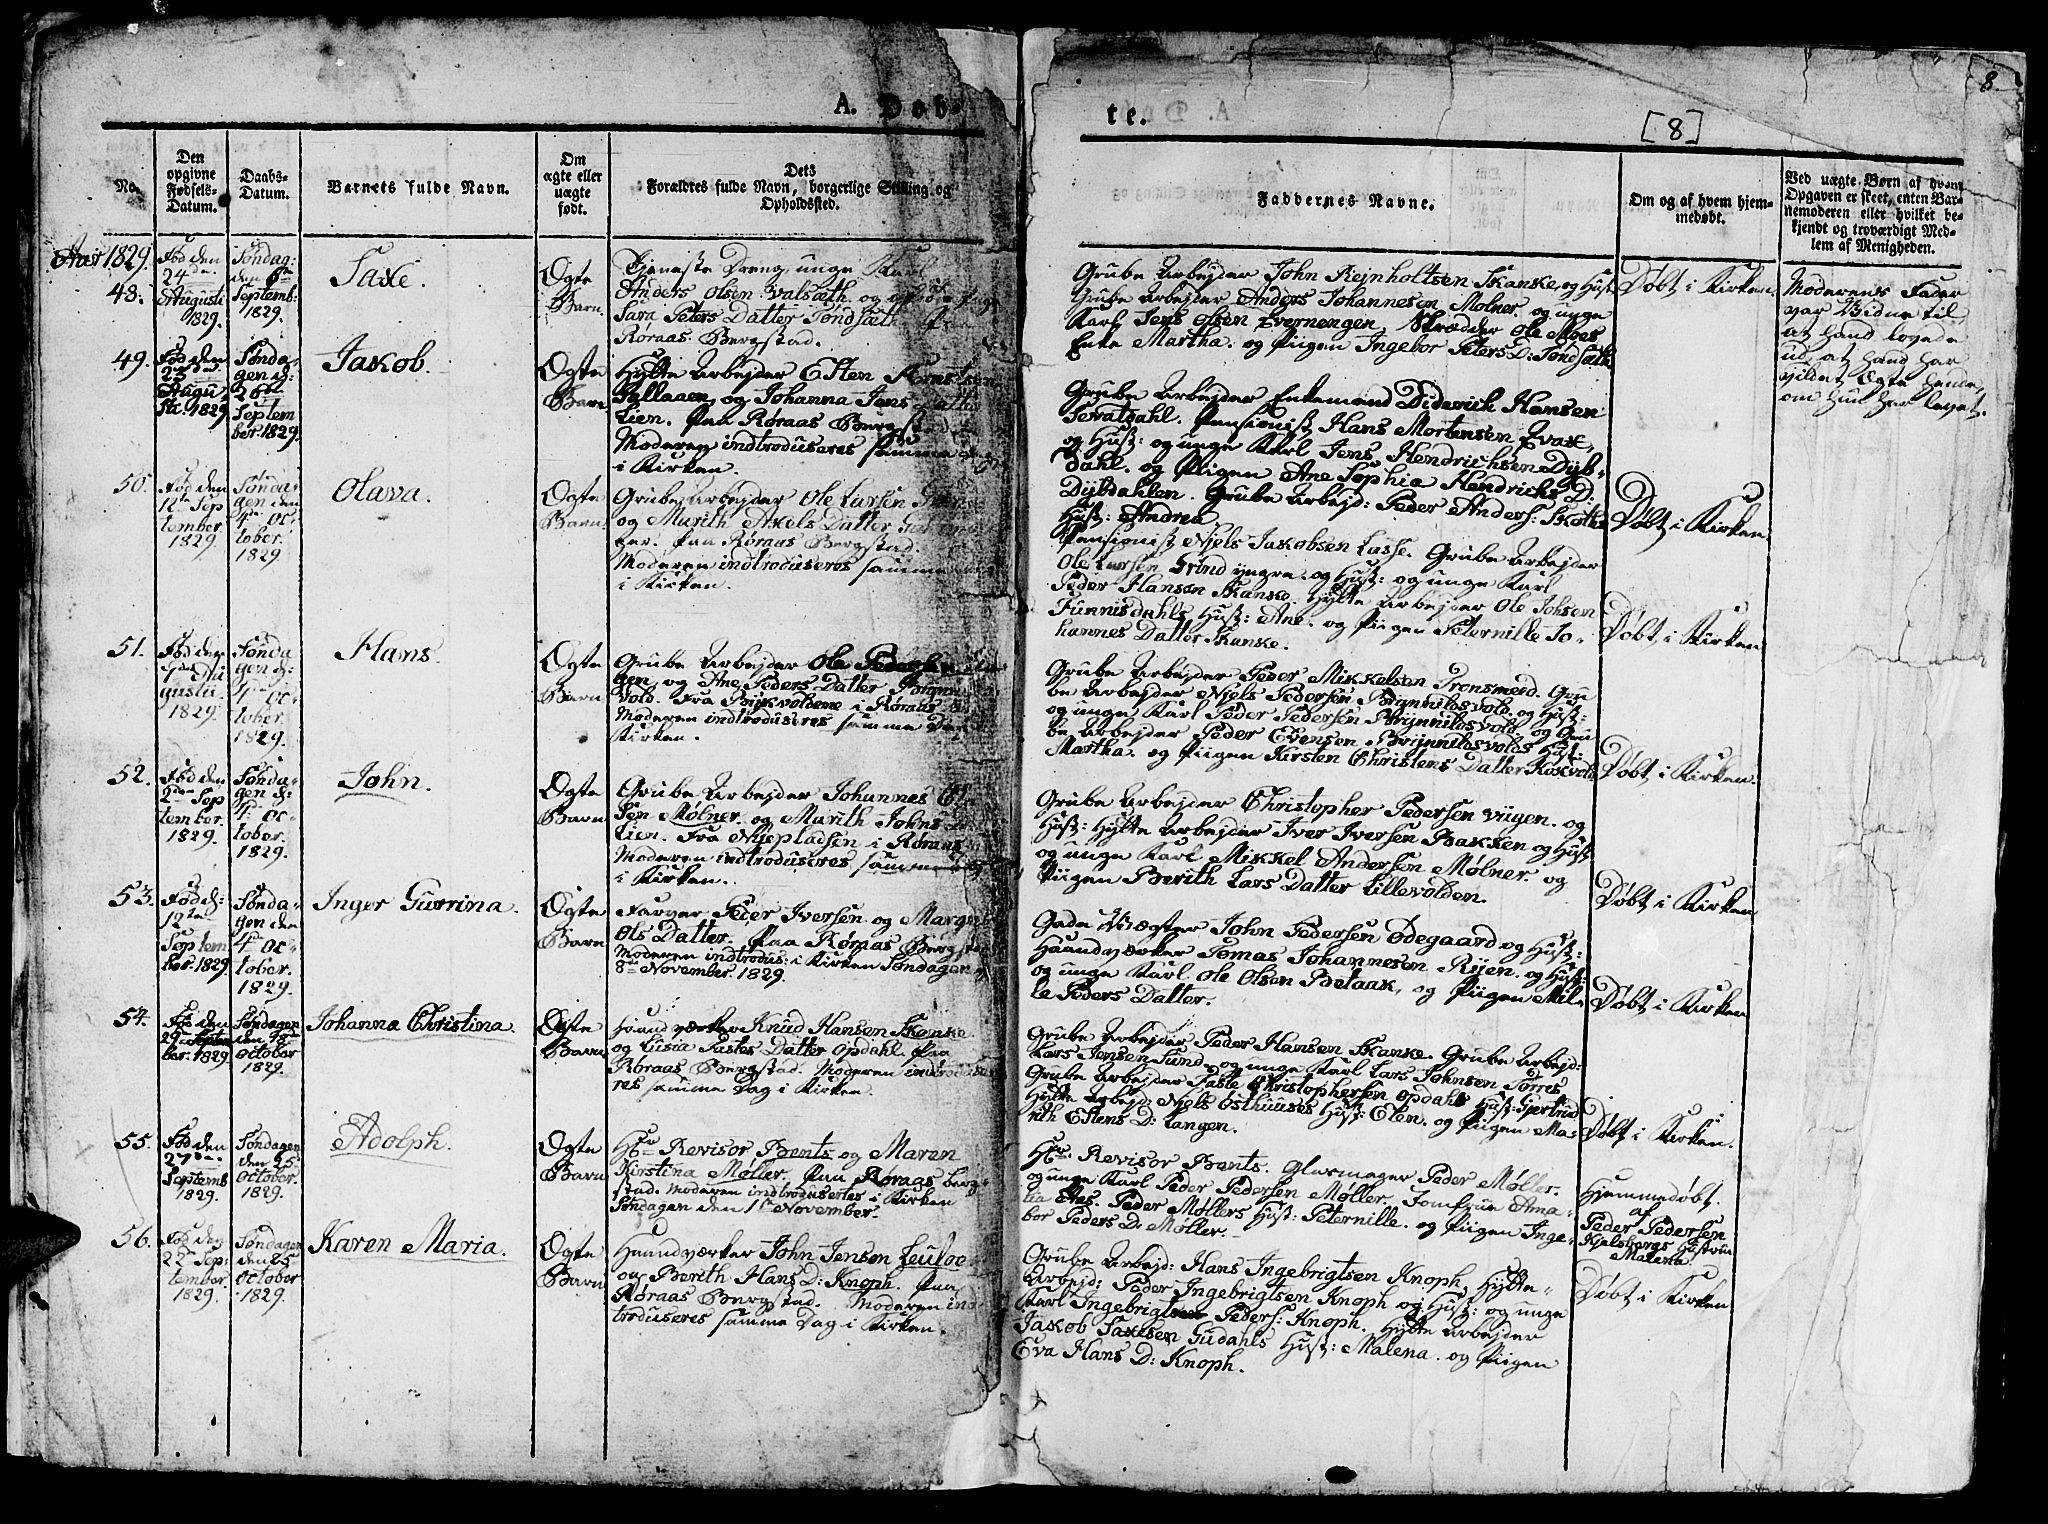 A. Døb-
te.
[8]
8.
No.
Den
opgivne
Fødsels-
Datum.
Daabs-
Datum.
Barnets fulde Navn.
Om
ægte eller
uægte
født.
Dets
Forældres fulde Navn, borgerlige Stilling og
Opholdssted.
Faddernes Navne.
Om og af hvem hjem-
medøbt.
Ved uægte Børn af hvem
Opgaven er skeet, enten Bar-
nemoderen eller hvilket be-
kjendt og troværdigt Med-
lem af Menigheden.
1829.
48.
Fød den
24de
Augusti
1829.
Søndag:
den 6te
Septemb:
1829.
Saxe
Ægte
Barn.
Tjeneste Dreng, unge Karl
Anders Olsen Valsæth, og
Sara Peters Datter Tøndsæth
Røraas Bergstad.
Grube Arbejder John Rejnholtsen Skanke, og Hust:
Grube Arbejder Anders Johannesen Mølner, og unge
Karl Jens Olsen Evernengen, Skrædder Ole Moes
Enke Martha. og Piigen Ingebor Peters D: Tøndsæth
Døbt i Kirken.
Moderens Fader
var Vidne til
at hand lovede
ud, at hand har
vildet Ægte hende,
om hun har levet.
49.
Fød den
Augu-
sti 1829
Sønda-
gen d:
20de
Septem
ber. 1829.
Jakob.
Ægte
Barn
Hytte Arbejder Esten
og Johanna Jens Datter
Lien. Paa Røraas Bergstad
Moderen indtroduseres samme
i Kirken.
Grube Arbejder Enkemand Diderich Hansen
Sevaldahl. Pensionist Hans Mortensen Evax,
og Hust: og unge Karl Jens Hendrichsen Dyb-
dahl. og Piigen Ane Sophia Hendrichs D:
Dybdahlen. Grube Arbejd: Peder Anders: Skotts
Hust: Andrea.
Døbt i Kirken.
50.
Fød den
Sep
tember
1829.
Sønda-
gen den
4de Oc-
tober.
1829
Olava.
Ægte
Barn.
Grube Arbejder Ole Larsen
og Marith Axels Datter
Paa Røraas Bergstad.
Moderen indtroduseres samme
i Kirken.
Pensionist Njels Jakobsen Lasse. Grube Arbejder
Ole Larsen Grind yngre. og Hust: og unge Karl
Peder Hansen Skanke. Hytte Arbejder Ole Johsen
Funnisdahls Hust: Ane. og Piigen Peternille Jo-
hannes Datter Skanke.
Døbt i Kirken
51.
Fød den
Au
gustii
1829.
Sønda
gen d:
4de Oc-
tober.
1829.
Hans.
Ægte
Barn
Grube Arbejder Ole
gen, og Ane Peders Datter
vold. Fra Bükvoldene i Røraas
Moderen indtroduseres samme Dag
Kirken.
Grube Arbejder Peder Mikkelsen Tronsmoed. Gru
be Arbejder Njels Pedersen Brynnildsvold. og Hust:
og unge Karl Peder Pedersen Brynnildsvold. og Gru
be Arbejder Peder Evensen Brynnildsvolds Hust:
Martha. og Piigen Kirsten Christens Datter Koxvold
Døbt i Kirken.
52.
Fød den
2den Sep
tember.
1829.
Sønda-
gen d:
4de Oc-
tober.
1829.
John.
Ægte
Barn
Grube Arbejder Johannes
sen Mølner. og Marith Johns
Lien. Fra Nyepladsen i Røraas
Moderen indtroduseres samme
i Kirken.
Grube Arbejder Christopher Pedersen Viigen. og
Hust: Hytte Arbejder Iver Iversen Bakken og Hust
og unge Karl Mikkel Andersen Mølner. og
Piigen Berith Lars Datter Lillevolden.
Døbt i Kirken
53.
Fød d:
12te
Septem
ber. 1829
Sønda-
gen den
4de Oc-
tober.
1829.
Inger Gurrina.
Ægte
Barn
Farver Peter Iversen og
Ols Datter. Paa Røraas Bergstad
Moderen indtrodus: i Kirken Søndagen
8de November 1829.
Gade Vægter John Pedersen Ødegaard og Hust:
Haandværker Tomas Johannesen Ryen. og Hust:
og unge Karl Ole Olsen Betaak, og Piigen Mil-
le Peders Datter.
Døbt i Kirken
54.
Fød den
29de Septem
ber. 1829
Søndagen
den 18de
October
1829.
Johanna Christina.
Ægte
Barn
Haandværker Knud Hansen Skanke
og Lusia Fastes Datter Opdahl. Paa
Røraas Bergstad. Moderen indtroduse-
res samme Dag i Kirken.
Grube Arbejder Peder Hansen Skanke. Grube Arbejd:
Lars Jensen Sund, og unge Karl Lars Johnsen Torres
Grube Arbejder Faste Christophersen Opdahls Hust: Gjertrud
Hytte Arbejd: Njels Østhuuses Hust: Elen. og Piigen Ma-
rith Estens D: Langen.
Døbt i Kirken.
55.
Fød den
27de
Septemb
1829.
Søndagen
den 25
October.
1829.
Adolph.
Ægte
Barn
Hr. Revisor Bents og Maren
Kirstina Møller. Paa Røraas Berg-
stad. Moderen indtroduseres i Kirken
Søndagen den 1ste November.
Hr. Revisor Bents. Glasmager Peder Møller.
og unge Karl Peder Pedersen Møller. Jomfrue Ama-
lia Aas. Peder Møllers Hust: Peternille. og Piigen Inge-
bor Peders D: Møller.
Hjemmedøbt.
af
Peder Pedersen
Kjelsbergs Hustrue
Malena.
56.
Fød den
22de Sep-
tember
1829.
Søndagen
den 25
October
1829.
Karen Maria.
Ægte
Barn
Haandværker John Jensen
og Berith Hans D: Knoph. Paa
Røraas Bergstad. Moderen in-
troduseres samme Dag i Kirken.
Grube Arbejd: Hans Ingebrigtsen Knoph. Hytte-
Arbejd: Peder Ingebrigtsen Knoph og Hust: og unge
Karl Ingebrigtsen Peders: Knoph. Hytte Arbejder
Jakob Saxesen Gudahls Hust: Malena. og Piigen
Eva Hans D: Knoph.
Døbt i Kirken